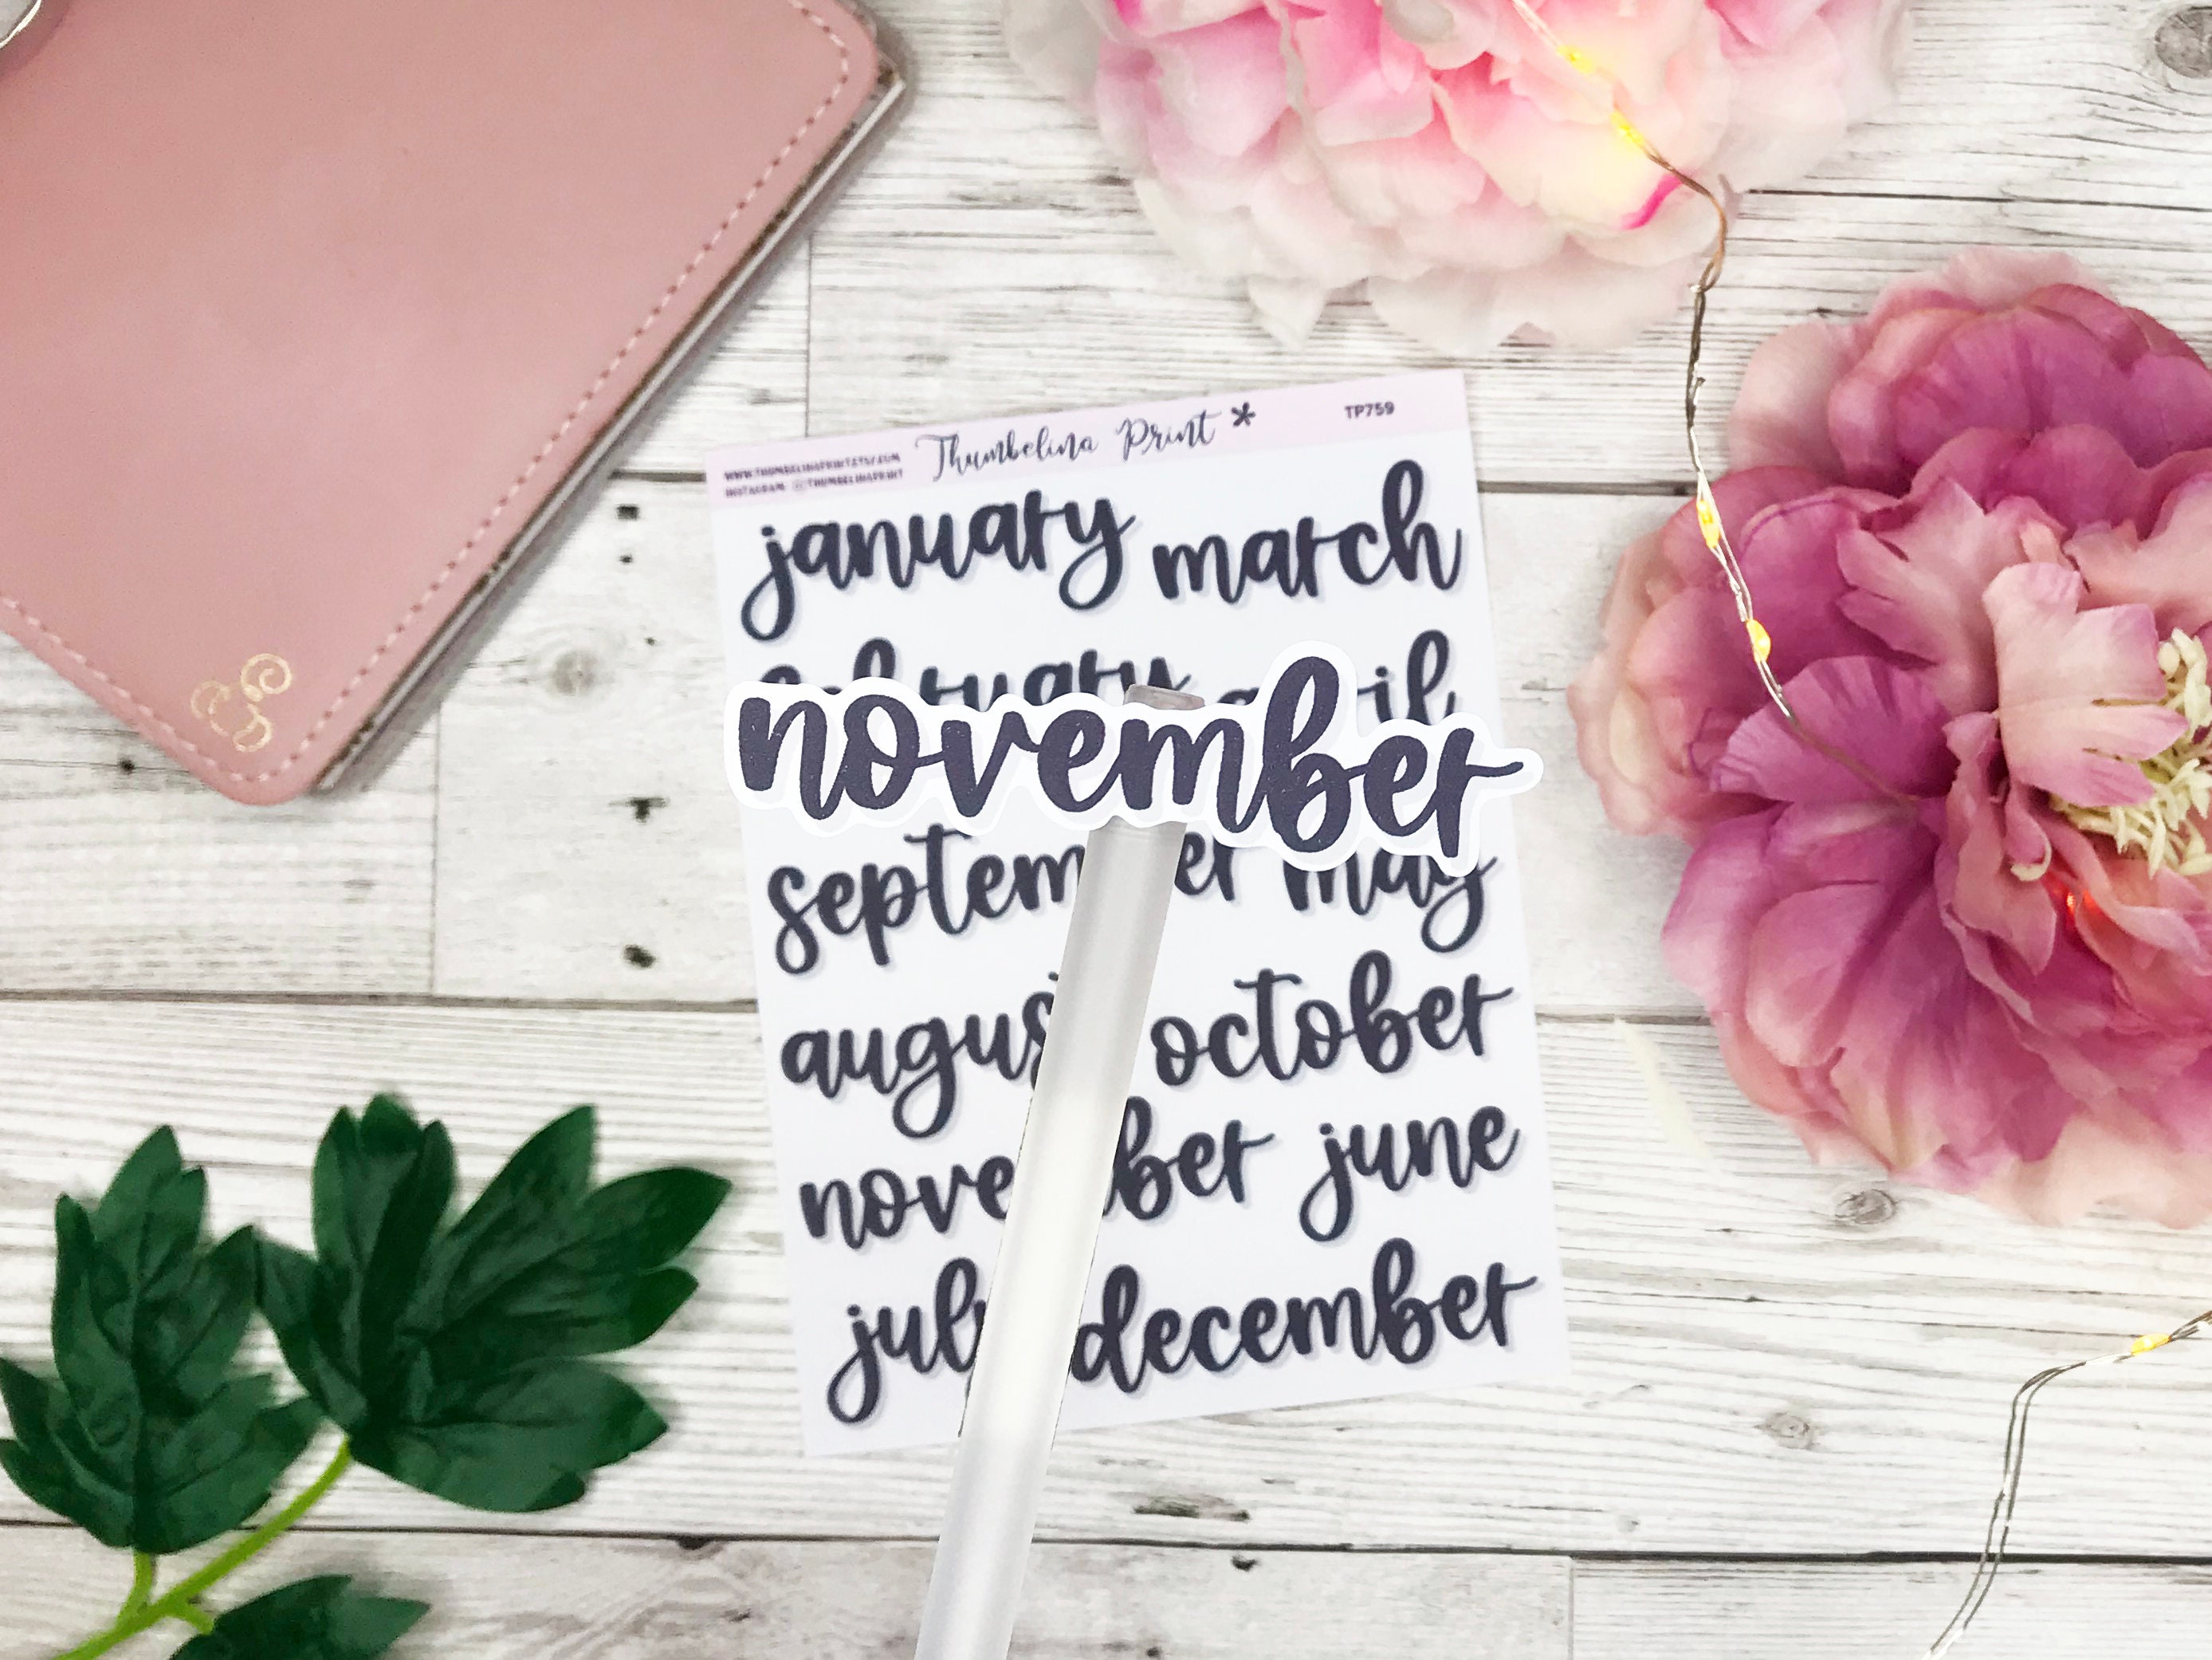 WWW.THUMBELINAPRINT.ETSY.COM
INSTAGRAM: @THUMBELINAPRINT
Thumbelina Print *
TP759
january march
february april
november
september may
august october
november june
july december